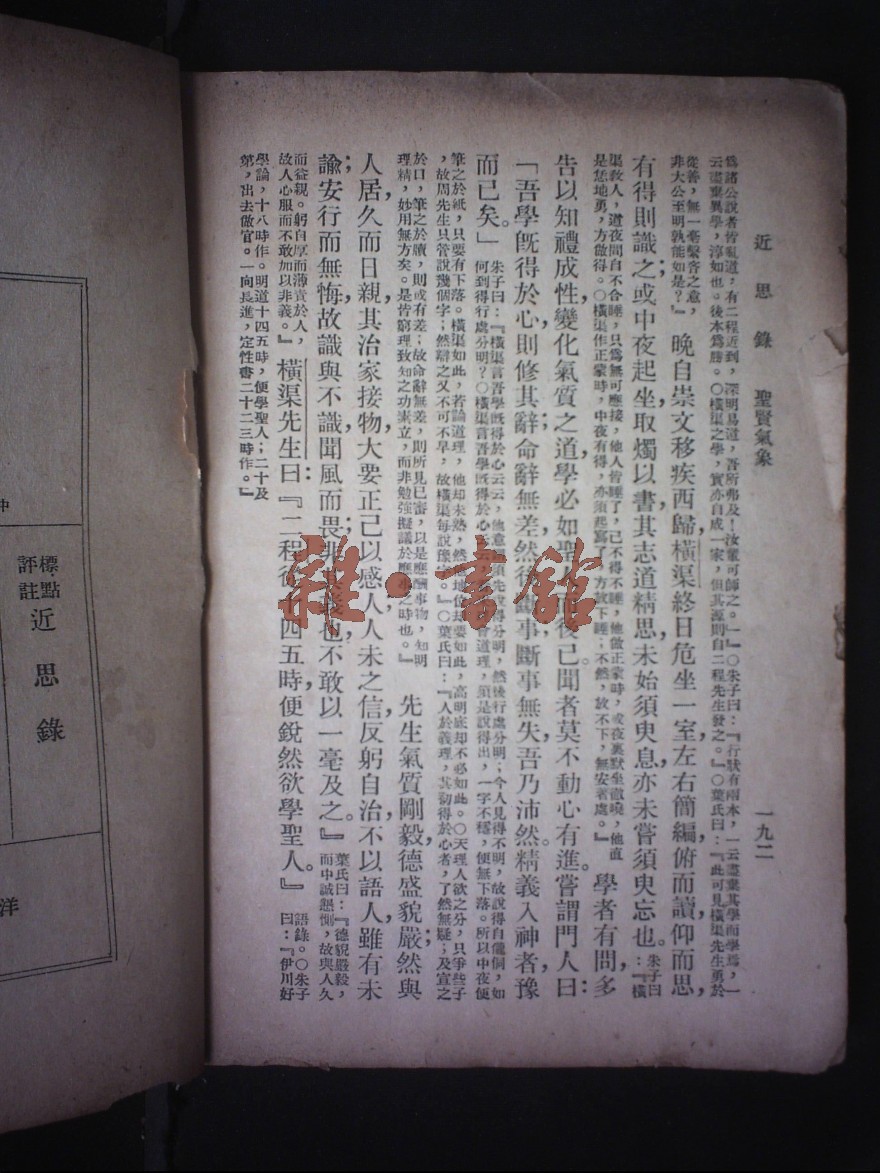 近思錄 聖賢氣象 一九二
爲諸公說者皆亂道，有二程近到，深明易道，吾所弗及！汝輩可師之。』○朱子曰：『行狀有兩本，一云盡棄其學而學焉，一
云盡棄異學，淳如也。後本爲勝。○橫渠之學，實亦自成一家，但其源則自二程先生發之。』○葉氏曰：『此可見橫渠先生勇於
從善，無一毫繫吝之意，
非大公至明孰能如是？』
晚自崇文移疾西歸橫渠終日危坐一室左右簡編俯而讀，仰而思，
有得則識之或中夜起坐取燭以書其志道精思未始須臾息亦未嘗須臾忘也。
朱子曰
：『橫
渠敎人，道夜間自不合睡，只爲無可應接，他人皆睡了，己不得不睡，他做正蒙時，或夜裏默坐徹曉，他直
是恁地勇，方做得。○橫渠作正蒙時，中夜有得，亦須起寫了，方放下睡；不然，放不下，無安著處。』
學者有問，多
告以知禮成性，變化氣質之道，學必如聖人而後已聞者莫不動心有進嘗謂門人曰：
「吾學旣得於心，則修其辭命辭無差，然後斷事斷事無失，吾乃沛然精義入神者，豫
而已矣。」
朱子曰：『橫渠言吾學旣得於心云云，他意謂須先說得分明，然後行處分明；今人見得不明，故說得自儱侗，如
何到得行處分明？○橫渠言吾學旣得於心云云，會道理，須是說得出，一字不穩，便無下落。所以中夜便
筆之於紙，只要有下落。橫渠如此，若論道理，他却未熟，然他地位却要如此，高明底却不必如此。○天理人欲之分，只爭些子
，故周先生只管說幾個字；然辯之又不可不早，故橫渠每說豫字。』○葉氏曰：『人於義理，其初得於心者，了然無疑；及宣之
於口，筆之於牘，則或有差；故命辭無差，則所見已審，以是應酬事物，知明
理精，妙用無方矣。是皆窮理致知之功素立，而非勉強擬議於應事之時也。』
先生氣質剛毅，德盛貌嚴；然與
人居，久而日親其治家接物，大要正己以感人人未之信，反躬自治，不以語人雖有未
諭；安行而無悔，故識與不識，聞風而畏；非其義也，不敢以一毫及之。』
葉氏曰：『德貌嚴毅，
而中誠懇惻，故與人久
而益親。躬自厚而薄責於人，
故人心服而不敢加以非義。』
橫渠先生曰：『二程從十四五時，便銳然欲學聖人。』
語錄。○朱子
曰：『伊川好
學論，十八時作。明道十四五時，便學聖人；二十及
第，出去做官。一向長進，定性書二十二三時作。』
標點
評註
近思錄
洋
雜·書館